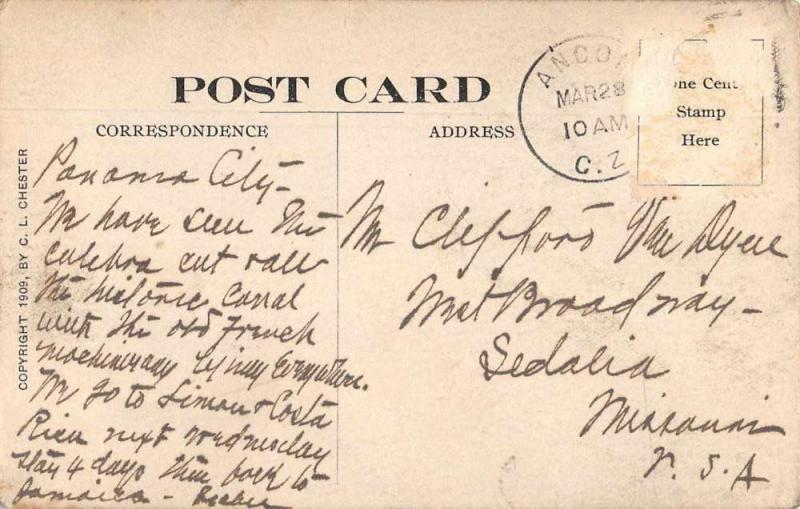 POST CARD
CORRESPONDENCE
ADDRESS
ANCON
MAR 28
10 AM
C. Z.
One Cent
Stamp
Here
COPYRIGHT 1909, BY C. L. CHESTER
Panama City -
We have seen the
Culebra cut
the historic Canal
with the old French
machinery lying Everywhere.
We go to Limon & Costa
Rica next Wednesday
stay 4 days then back to
Jamaica -
Mr Clifford Van Dyne
West Broadway -
Sedalia
Missouri
U. S. A